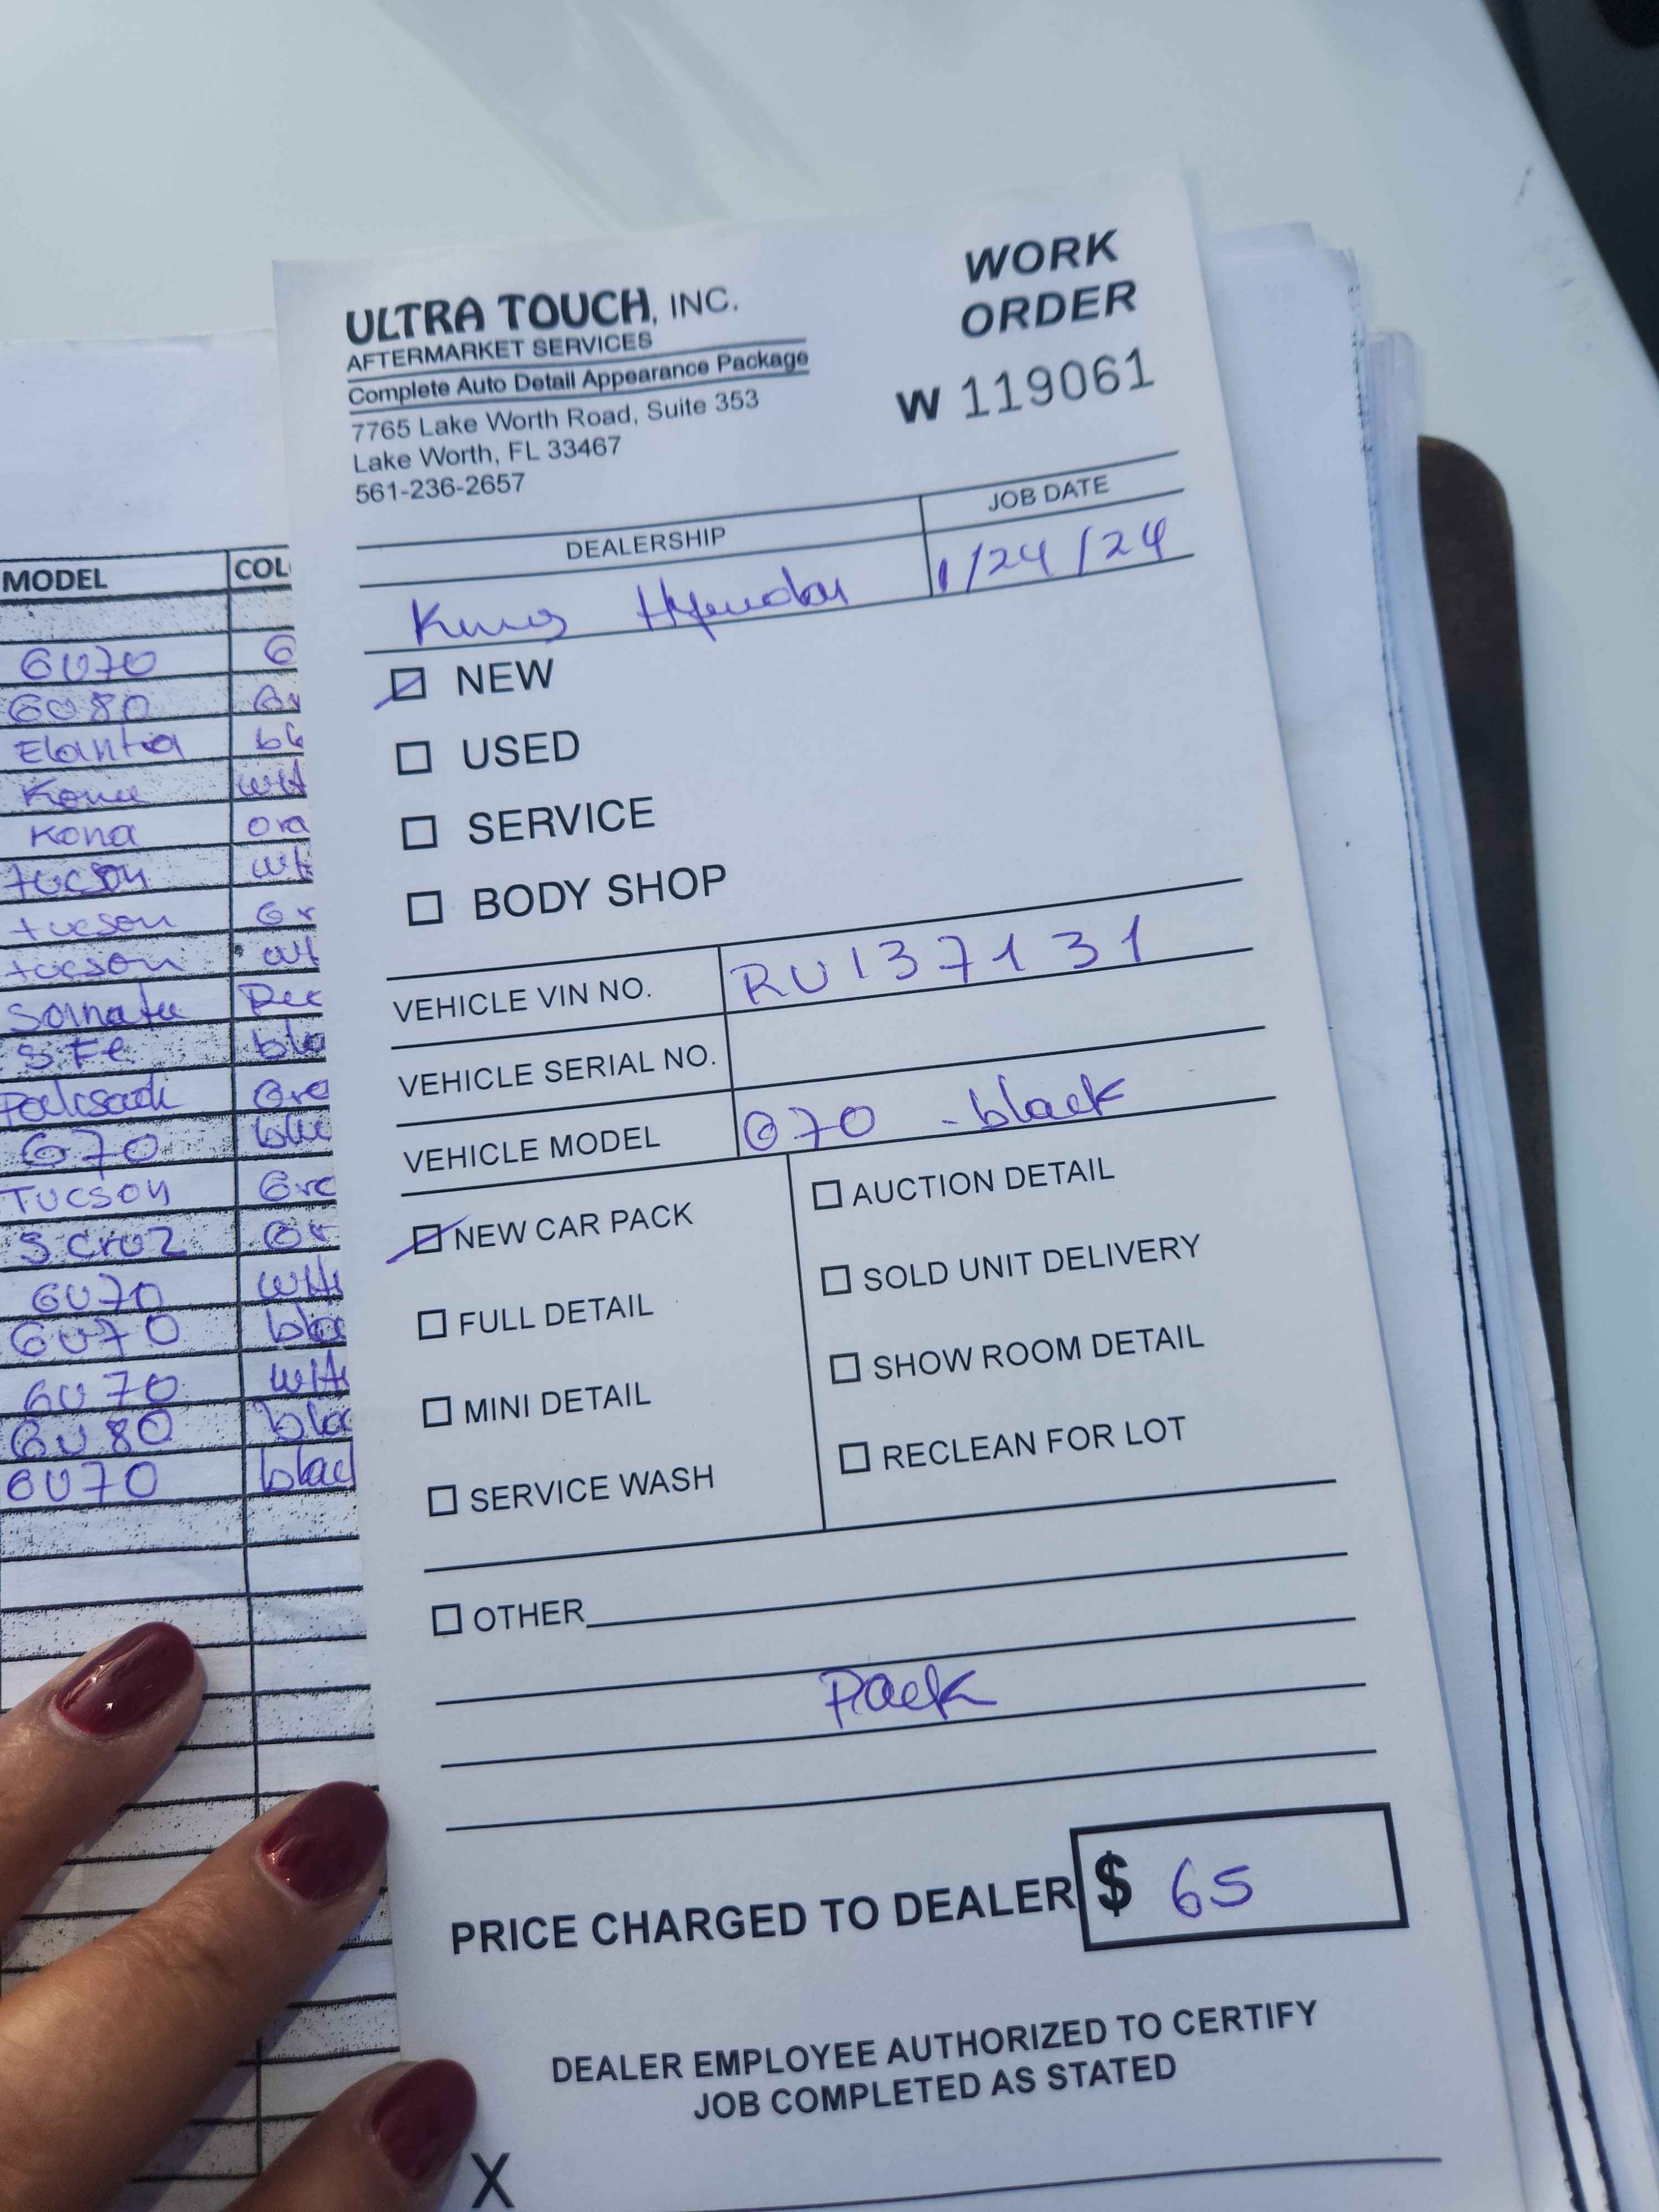 ULTRA TOUCH, INC.
AFTERMARKET SERVICES
Complete Auto Detail Appearance Package
7765 Lake Worth Road, Suite 353
Lake Worth, FL 33467
561-236-2657
WORK
ORDER
W 119061
DEALERSHIP
JOB DATE
1/24/24
NEW
USED
SERVICE
BODY SHOP
VEHICLE VIN NO. RU137131
VEHICLE SERIAL NO.
VEHICLE MODEL G70 - black
NEW CAR PACK
FULL DETAIL
MINI DETAIL
SERVICE WASH
AUCTION DETAIL
SOLD UNIT DELIVERY
SHOW ROOM DETAIL
RECLEAN FOR LOT
OTHER
Pack
PRICE CHARGED TO DEALER $ 65
DEALER EMPLOYEE AUTHORIZED TO CERTIFY
JOB COMPLETED AS STATED
X
MODEL COL
GV70 G
GV80 Gr
Elantra
Kona
Kona ora
tucson
tucson Gr
tucson
S.Fe bla
G70 blu
TUCSON Gre
S.Cruz Gr
GV70
GV70 blac
GV70
GV80 blac
GV70 blac